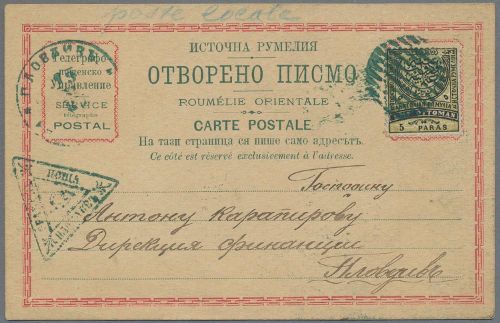 poste locale
ПЛОВДИВЪ
Телеграфо-
пощенско
Управление
SERVICE
télégraphe
POSTAL
ИСТОЧНА РУМЕЛИЯ
ОТВОРЕНО ПИСМО
ROUMÉLIE ORIENTALE
CARTE POSTALE
На тази страница ся пише само адресътъ.
Ce côté est réservé exclusivement à l'adresse.
5 PARAS
ПОЩА
Господину
Антону Каратирову
Дирекция финанции
Пловдивъ